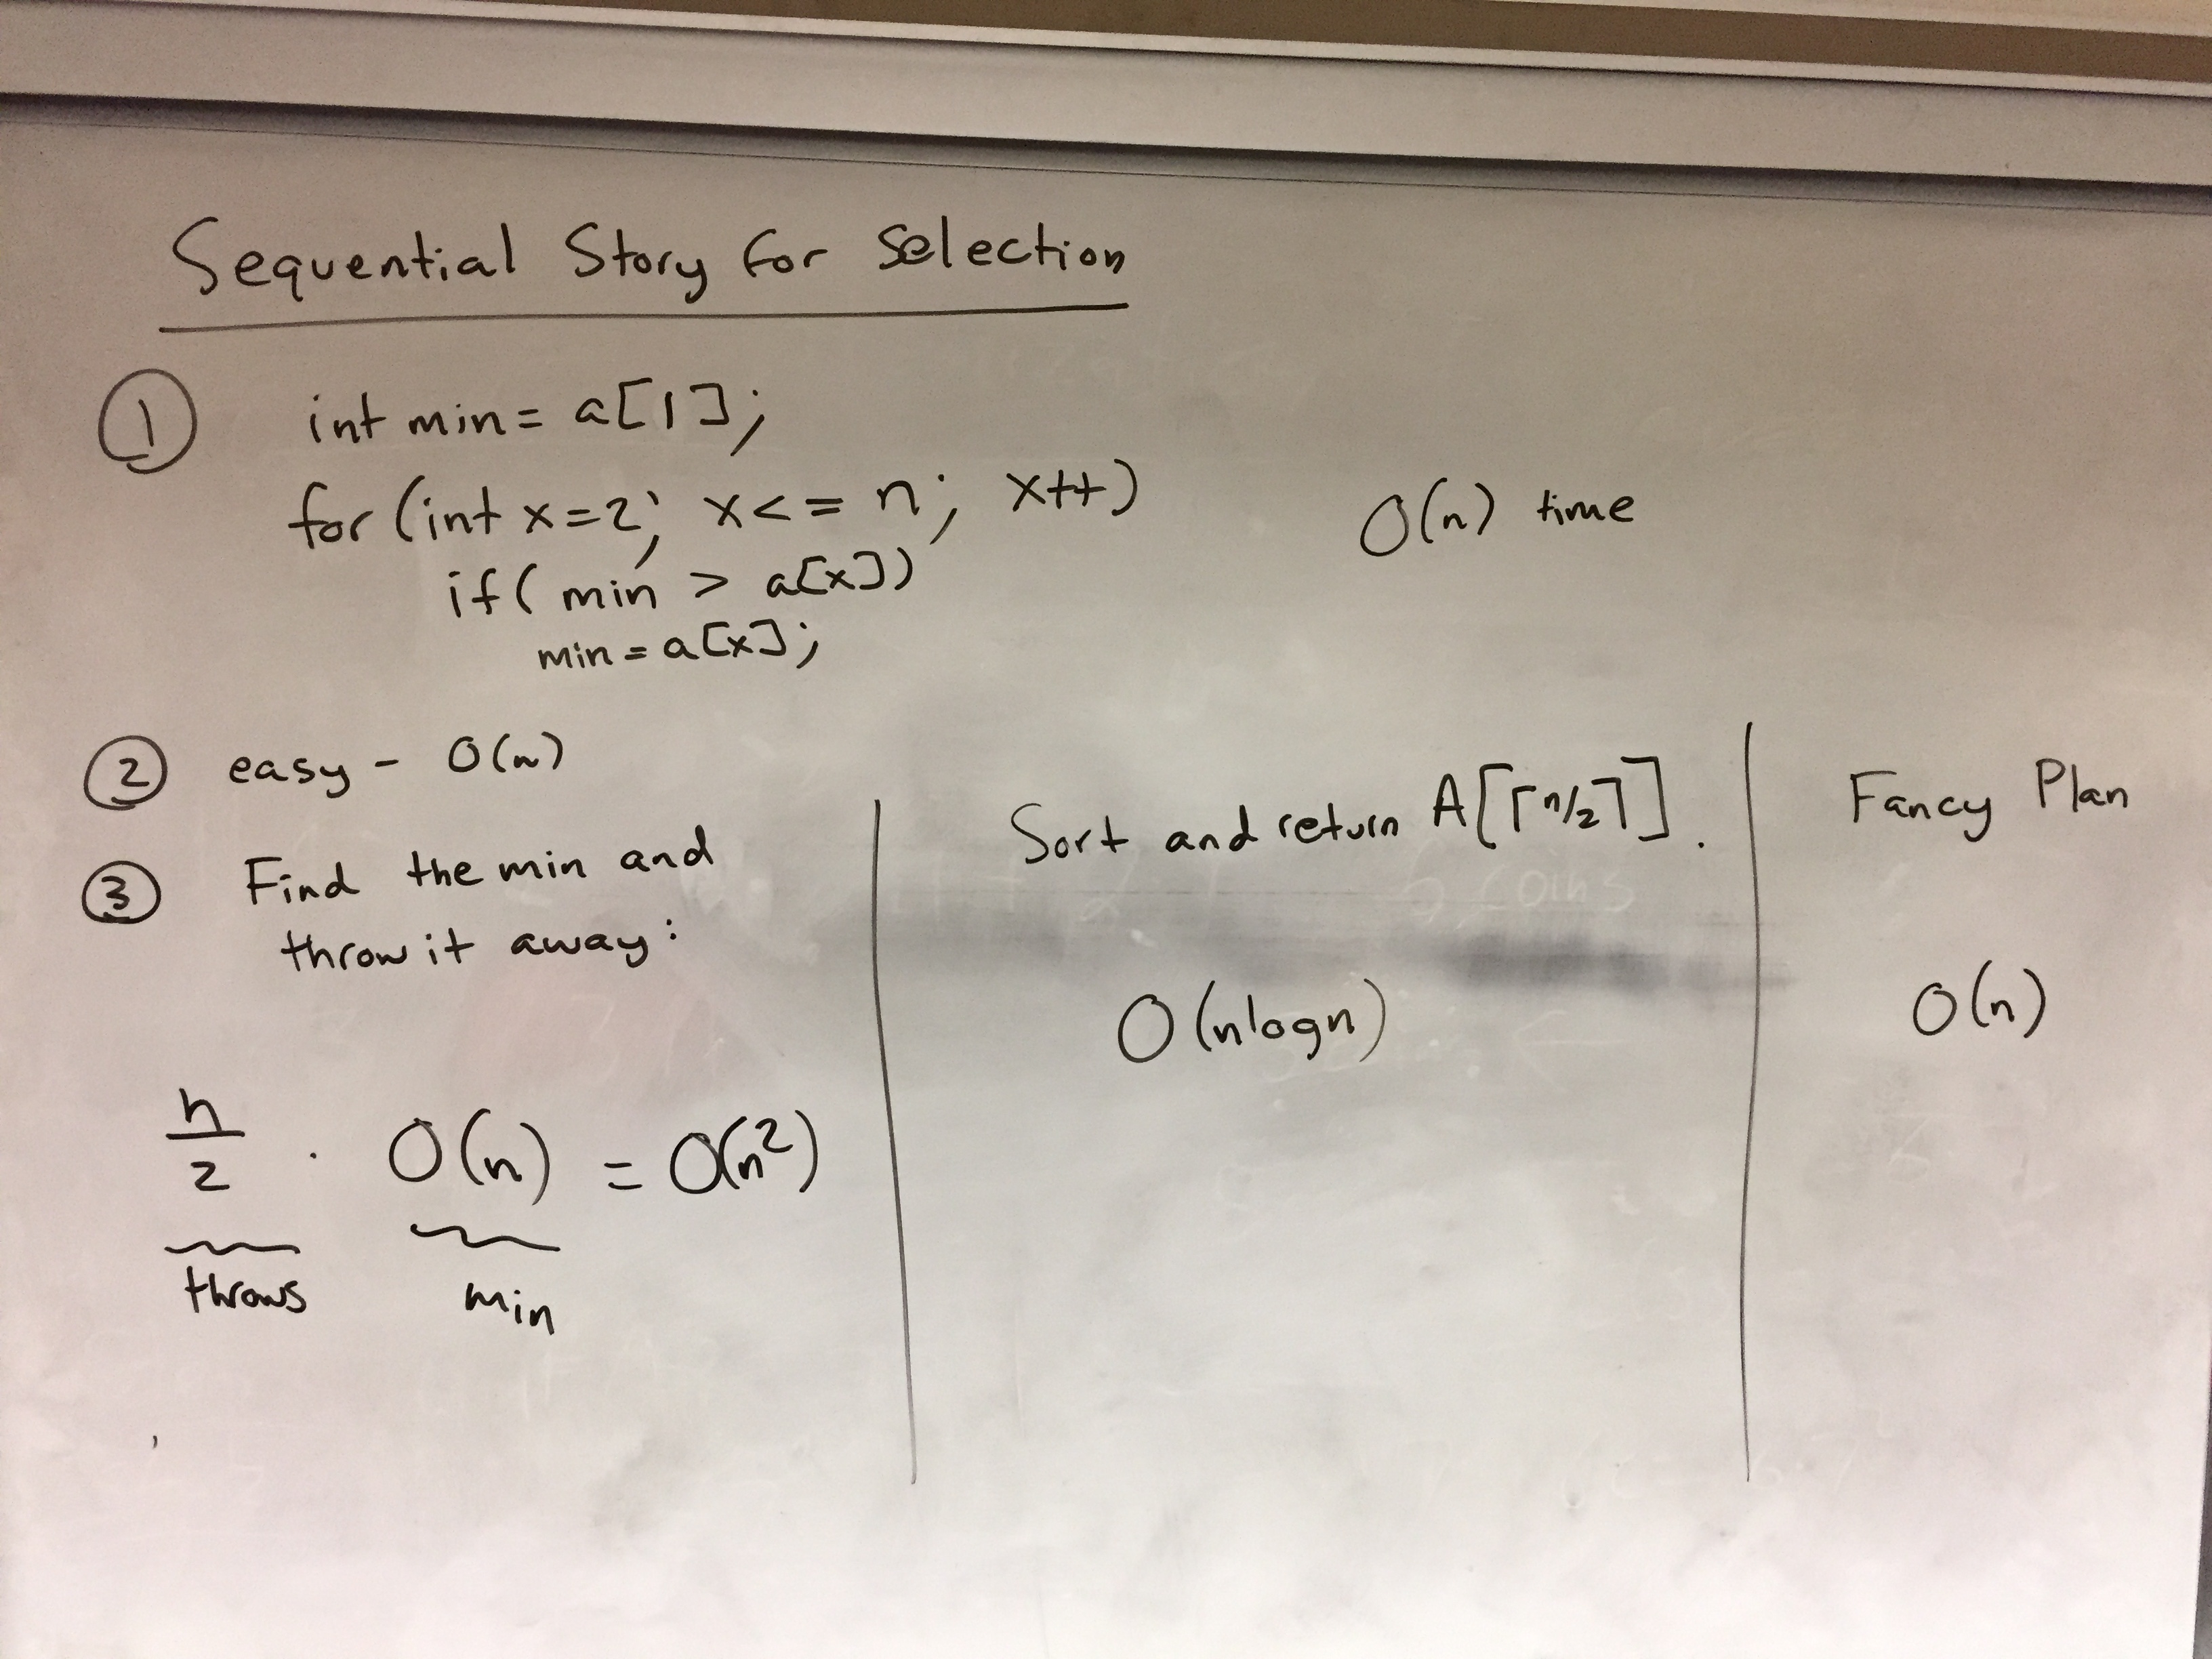 Sequential Story for Selection
① int min = a[1];
for (int x=2; x<= n; x++)
O(n) time
if( min > a[x])
min = a[x];
② easy - O(n)
③ Find the min and
throw it away:
n/2 · O(n) = O(n²)
throws min
Sort and return A[⌈n/2⌉].
O(nlogn)
Fancy Plan
O(n)